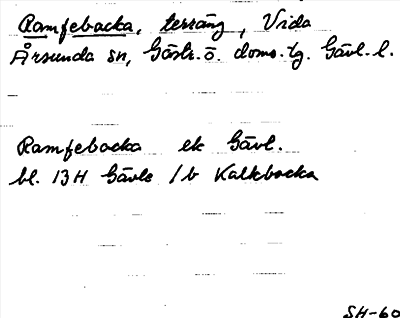 Ramfebacka, terräng, Vida
Årsunda sn, Gästr. ö. doms. tg. Gävl. l.
Ramfebacka ek Gävl.
bl. 13H Gävle /b Kalkbacka
SH-60